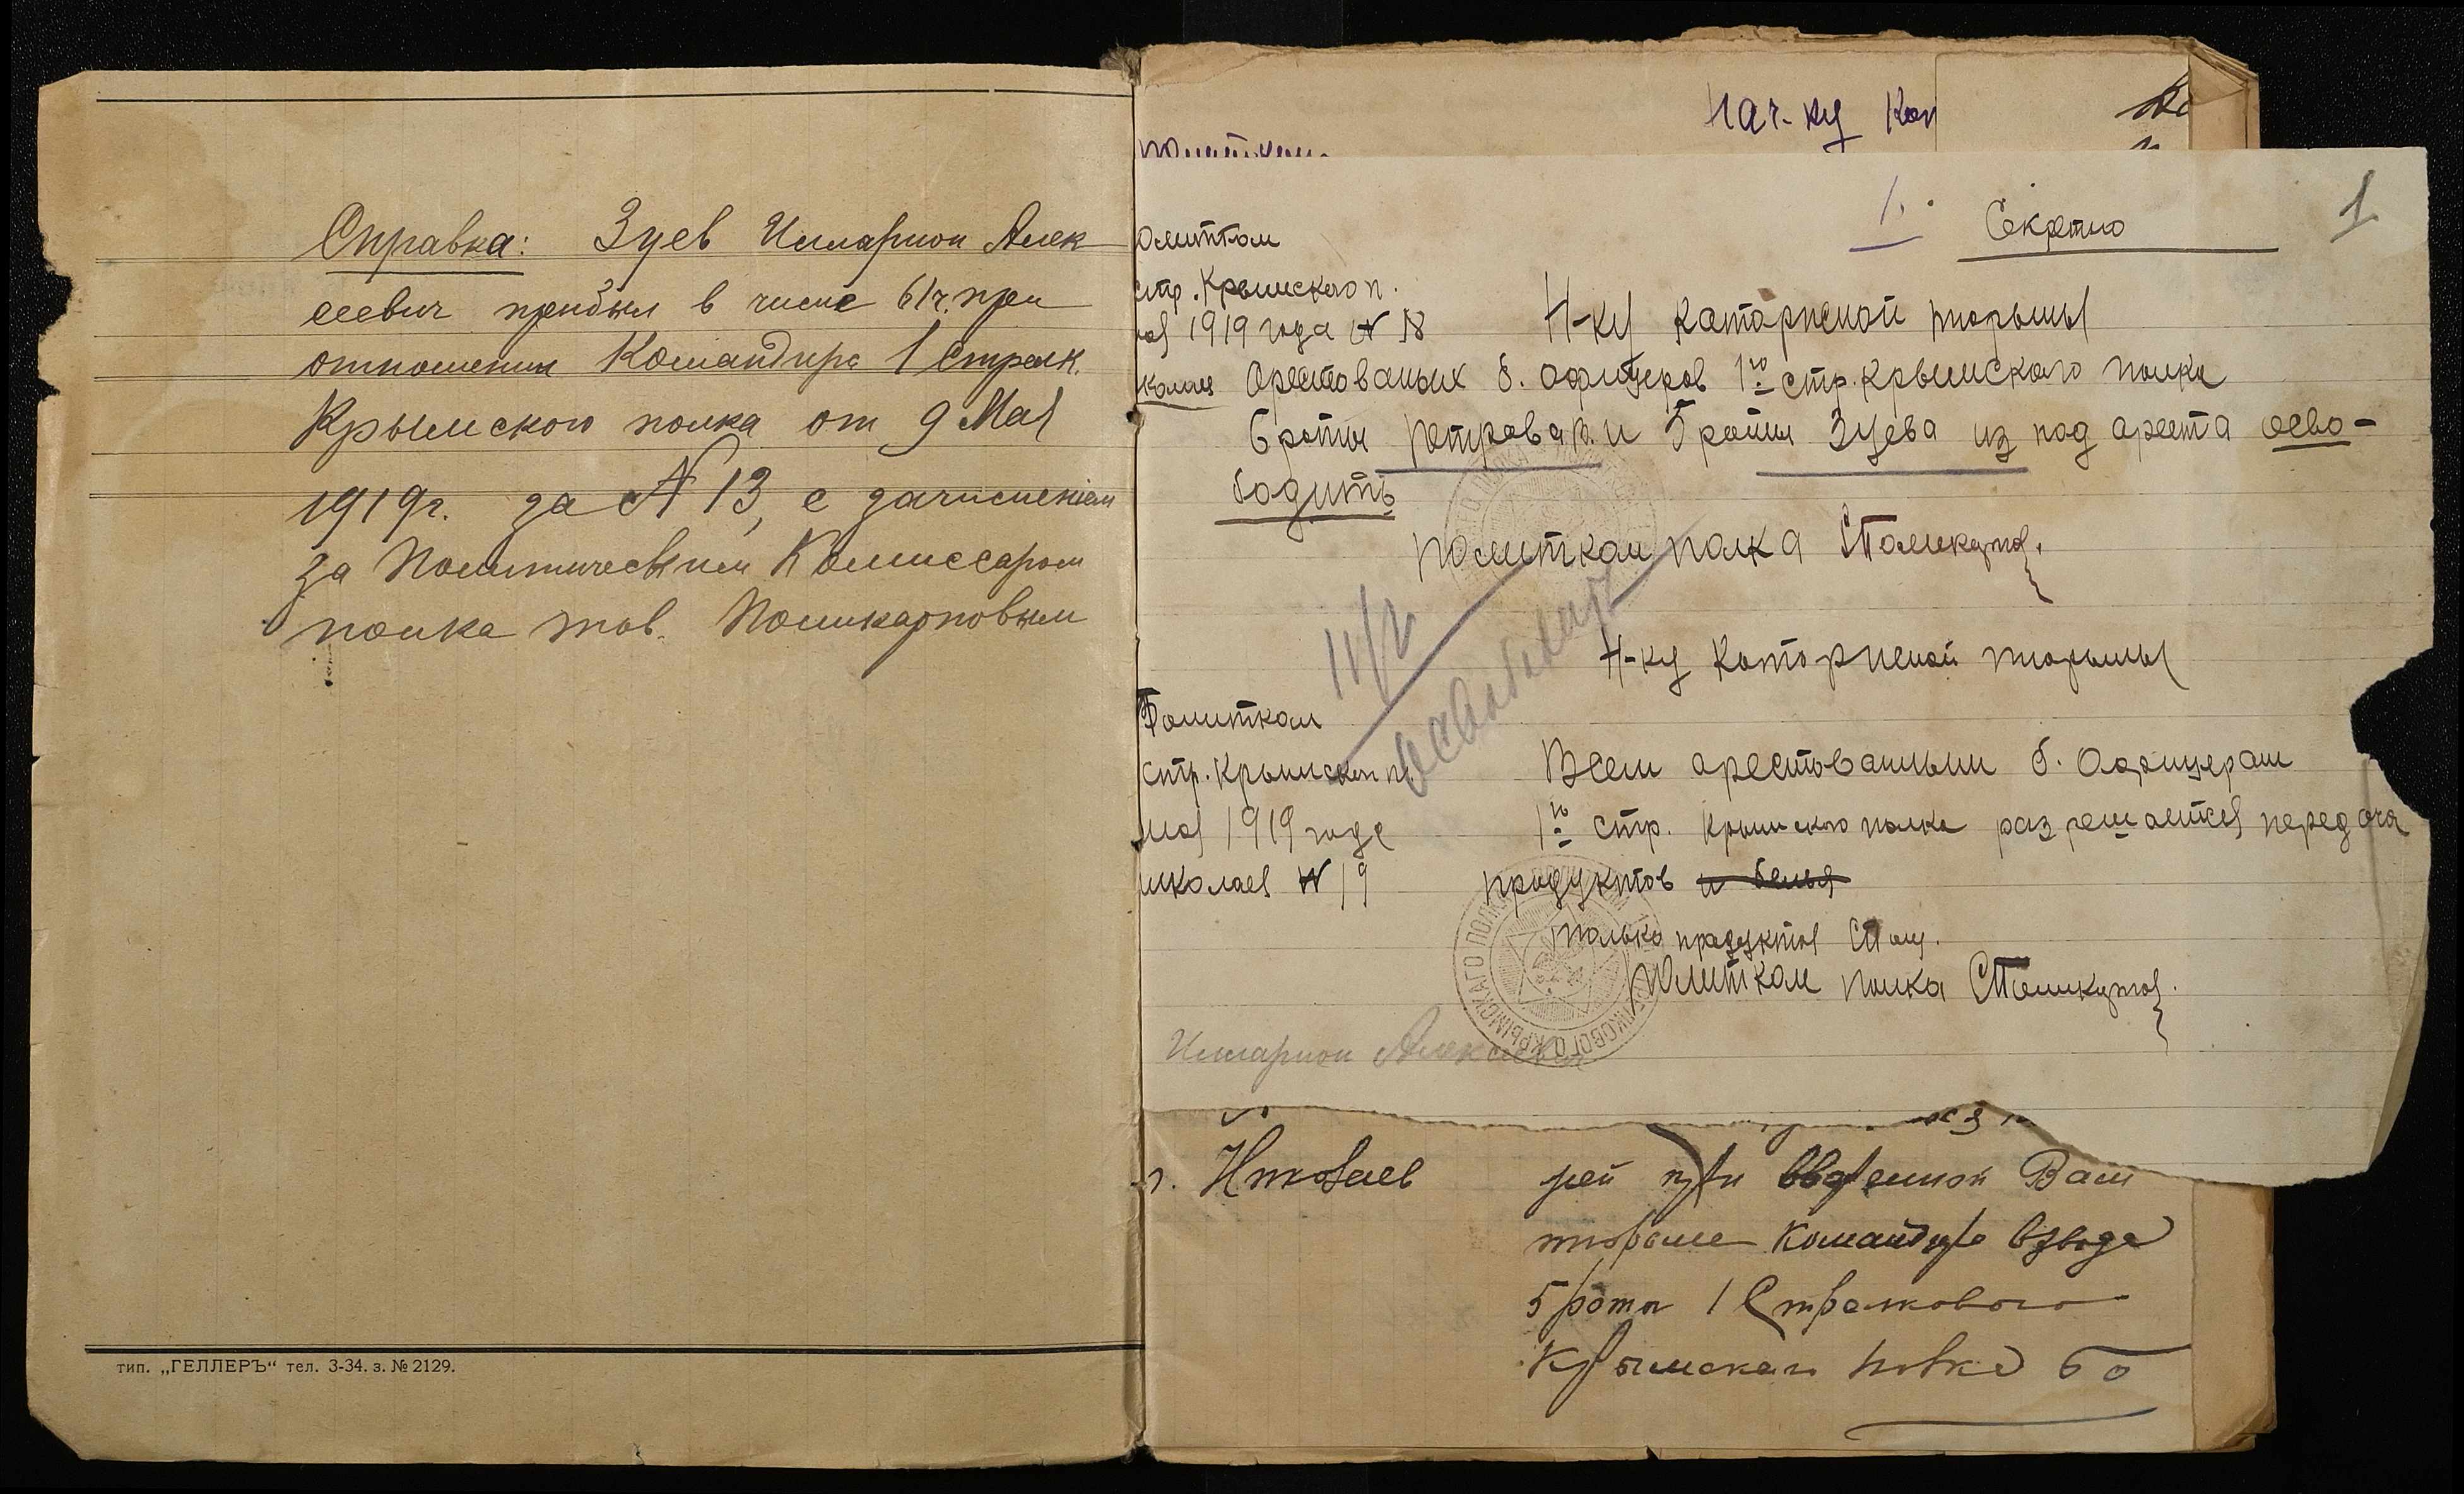 Справка: Зуев Илларион Алек
сеевич прибыл в числе 61 ч. при
отношении Командира 1 Стрелк.
Крымского полка от 9 Мая
1919 г. за № 13, с зачислением
за Политическим Комиссаром
полка тов. Поликарповым
тип. „ГЕЛЛЕРЪ“ тел. 3-34. з. № 2129.
Нач-ку
1.
Секретно
1
олитком
стр. Крымского п.
мая 1919 года № 18
Н-ку каторжной тюрьмы
Арестованых б. офицеров 1го стр. Крымского полка
6 роты Петрова и 5 роты Зуева из под ареста осво-
бодить
Политком полка
Н-ку каторжной тюрьмы
Политком
стр. Крымского п.
мая 1919 года
иколаев № 19
Всем арестованным б. Офицерам
1го стр. Крымского полка разрешается передача
продуктов и белья
только продуктов
Политком полка
Илларион Алексеев
г. Николаев
рей при вверенной Вам
тюрьме Командира взвода
5 роты 1 Стрелкового
Крымского полка